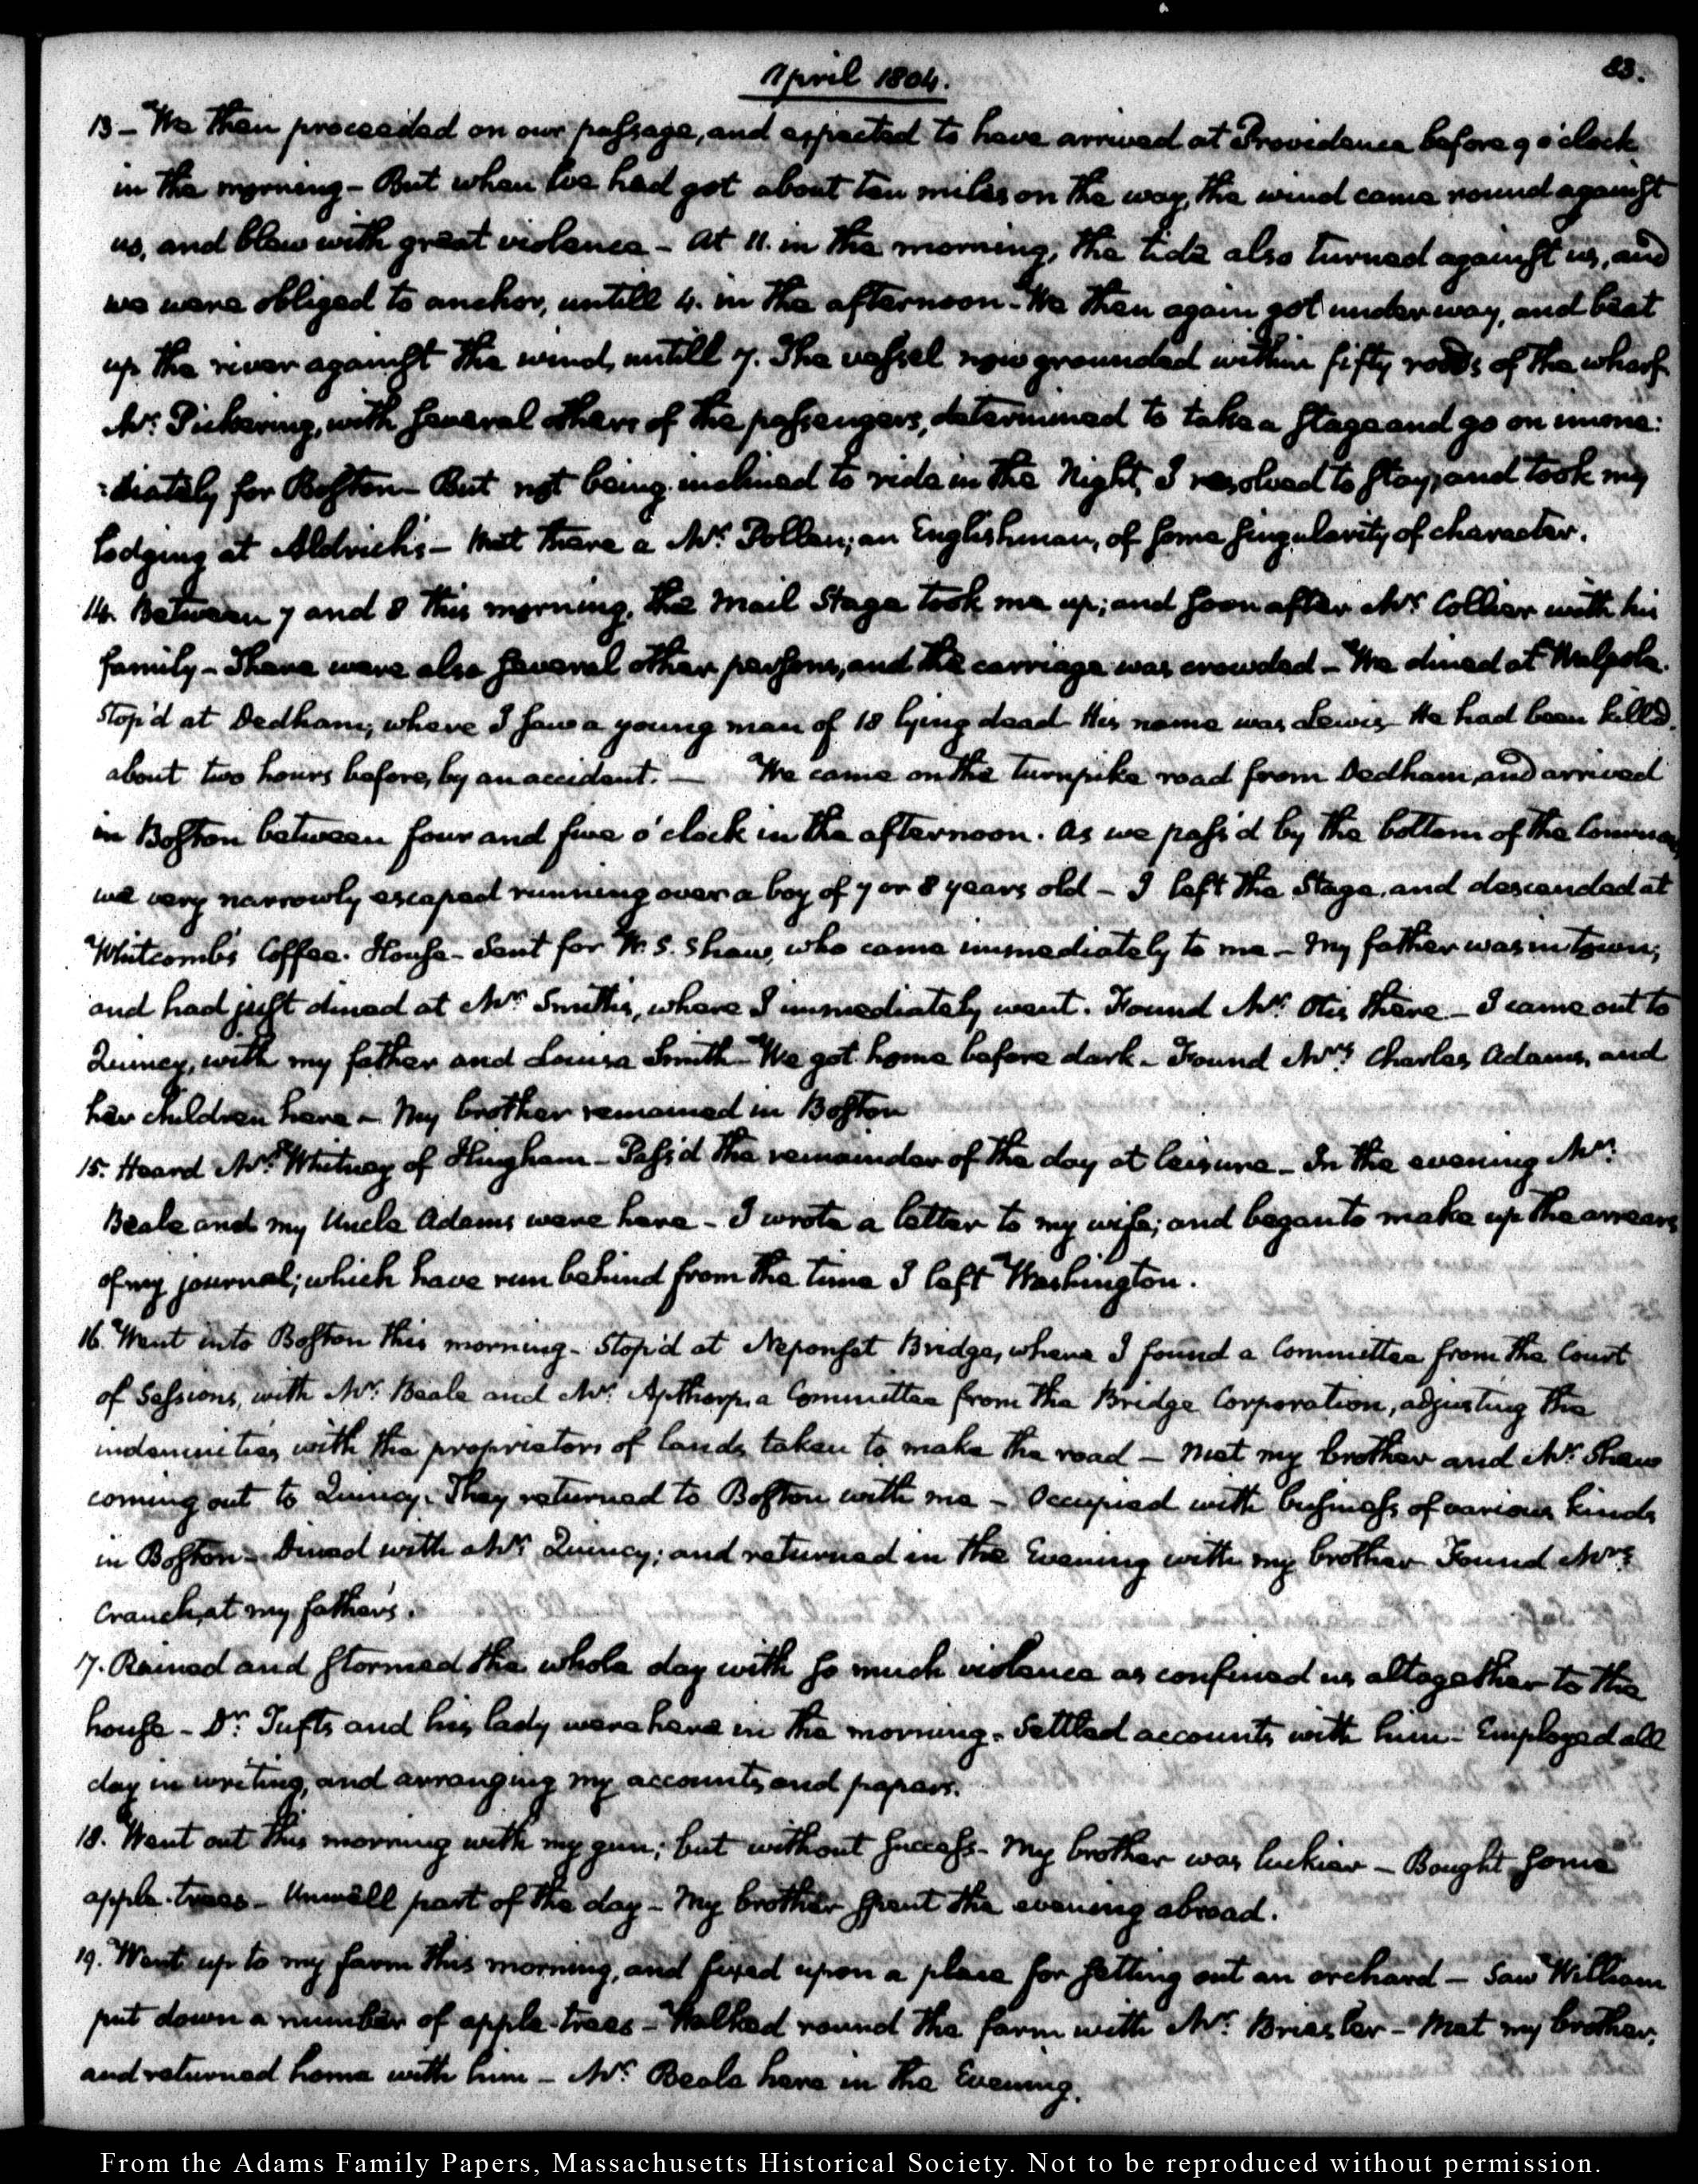 April 1804.
83.
13 – We then proceeded on our passage, and expected to have arrived at Providence before 9 o'clock
in the morning – But when we had got about ten miles on the way, the wind came round against
us, and blew with great violence – At 11. in the morning, the tide also turned against us, and
we were obliged to anchor, untill 4. in the afternoon – We then again got under way, and beat
up the river against the wind, untill 7. The vessel now grounded within fifty rods of the wharf
Mr. Pickering, with several others of the passengers, determined to take a stage and go on imme:
:diately for Boston – But not being inclined to ride in the Night, I resolved to stay, and took my
lodging at Aldrich's – Met there a Mr. Pollen; an Englishman, of some singularity of character.
14. Between 7 and 8 this morning, the Mail Stage took me up; and soon after Mr. Collier with his
family – There were also several other persons, and the carriage was crowded – We dined at Walpole.
Stop'd at Dedham, where I saw a young man of 18 lying dead – His name was Lewis – He had been killed
about two hours before, by an accident. — We came on the turnpike road from Dedham, and arrived
in Boston between four and five o'clock in the afternoon. As we pass'd by the bottom of the Common
we very narrowly escaped running over a boy of 7 or 8 years old – I left the Stage, and descended at
Whitcomb's Coffee-House – Sent for W. S. Shaw, who came immediately to me – My father was in town;
and had just dined at Mr. Smith's, where I immediately went. Found Mr. Otis there – I came out to
Quincy, with my father and Louisa Smith – We got home before dark – Found Mrs. Charles Adams, and
her children here – My brother remained in Boston
15. Heard Mr. Whitney of Hingham – Pass'd the remainder of the day at leisure – In the evening Mr.
Beale and my Uncle Adams were here – I wrote a letter to my wife; and began to make up the arrears
of my journal; which have run behind from the time I left Washington.
16. Went into Boston this morning – Stop'd at Neponset Bridge, where I found a Committee from the Court
of Sessions, with Mr. Beale and Mr. Apthorp, a Committee from the Bridge Corporation, adjusting the
indemnities with the proprietors of lands taken to make the road – Met my brother and Mr. Shaw
coming out to Quincy. They returned to Boston with me – Occupied with business of various kinds
in Boston – Dined with Mr. Quincy; and returned in the Evening with my brother – Found Mrs.
Cranch, at my father's.
17. Rained and stormed the whole day with so much violence as confined us altogether to the
house – Dr. Tufts and his lady were here in the morning – Settled accounts with him – Employed all
day in writing, and arranging my accounts and papers.
18. Went out this morning with my gun; but without success – My brother was luckier – Bought some
apple-trees – Unwell part of the day – My brother spent the evening abroad.
19. Went up to my farm this morning, and fixed upon a place for setting out an orchard – Saw William
put down a number of apple-trees – Walked round the farm with Mr. Briesler – Met my brother,
and returned home with him – Mr. Beale here in the Evening.
From the Adams Family Papers, Massachusetts Historical Society. Not to be reproduced without permission.